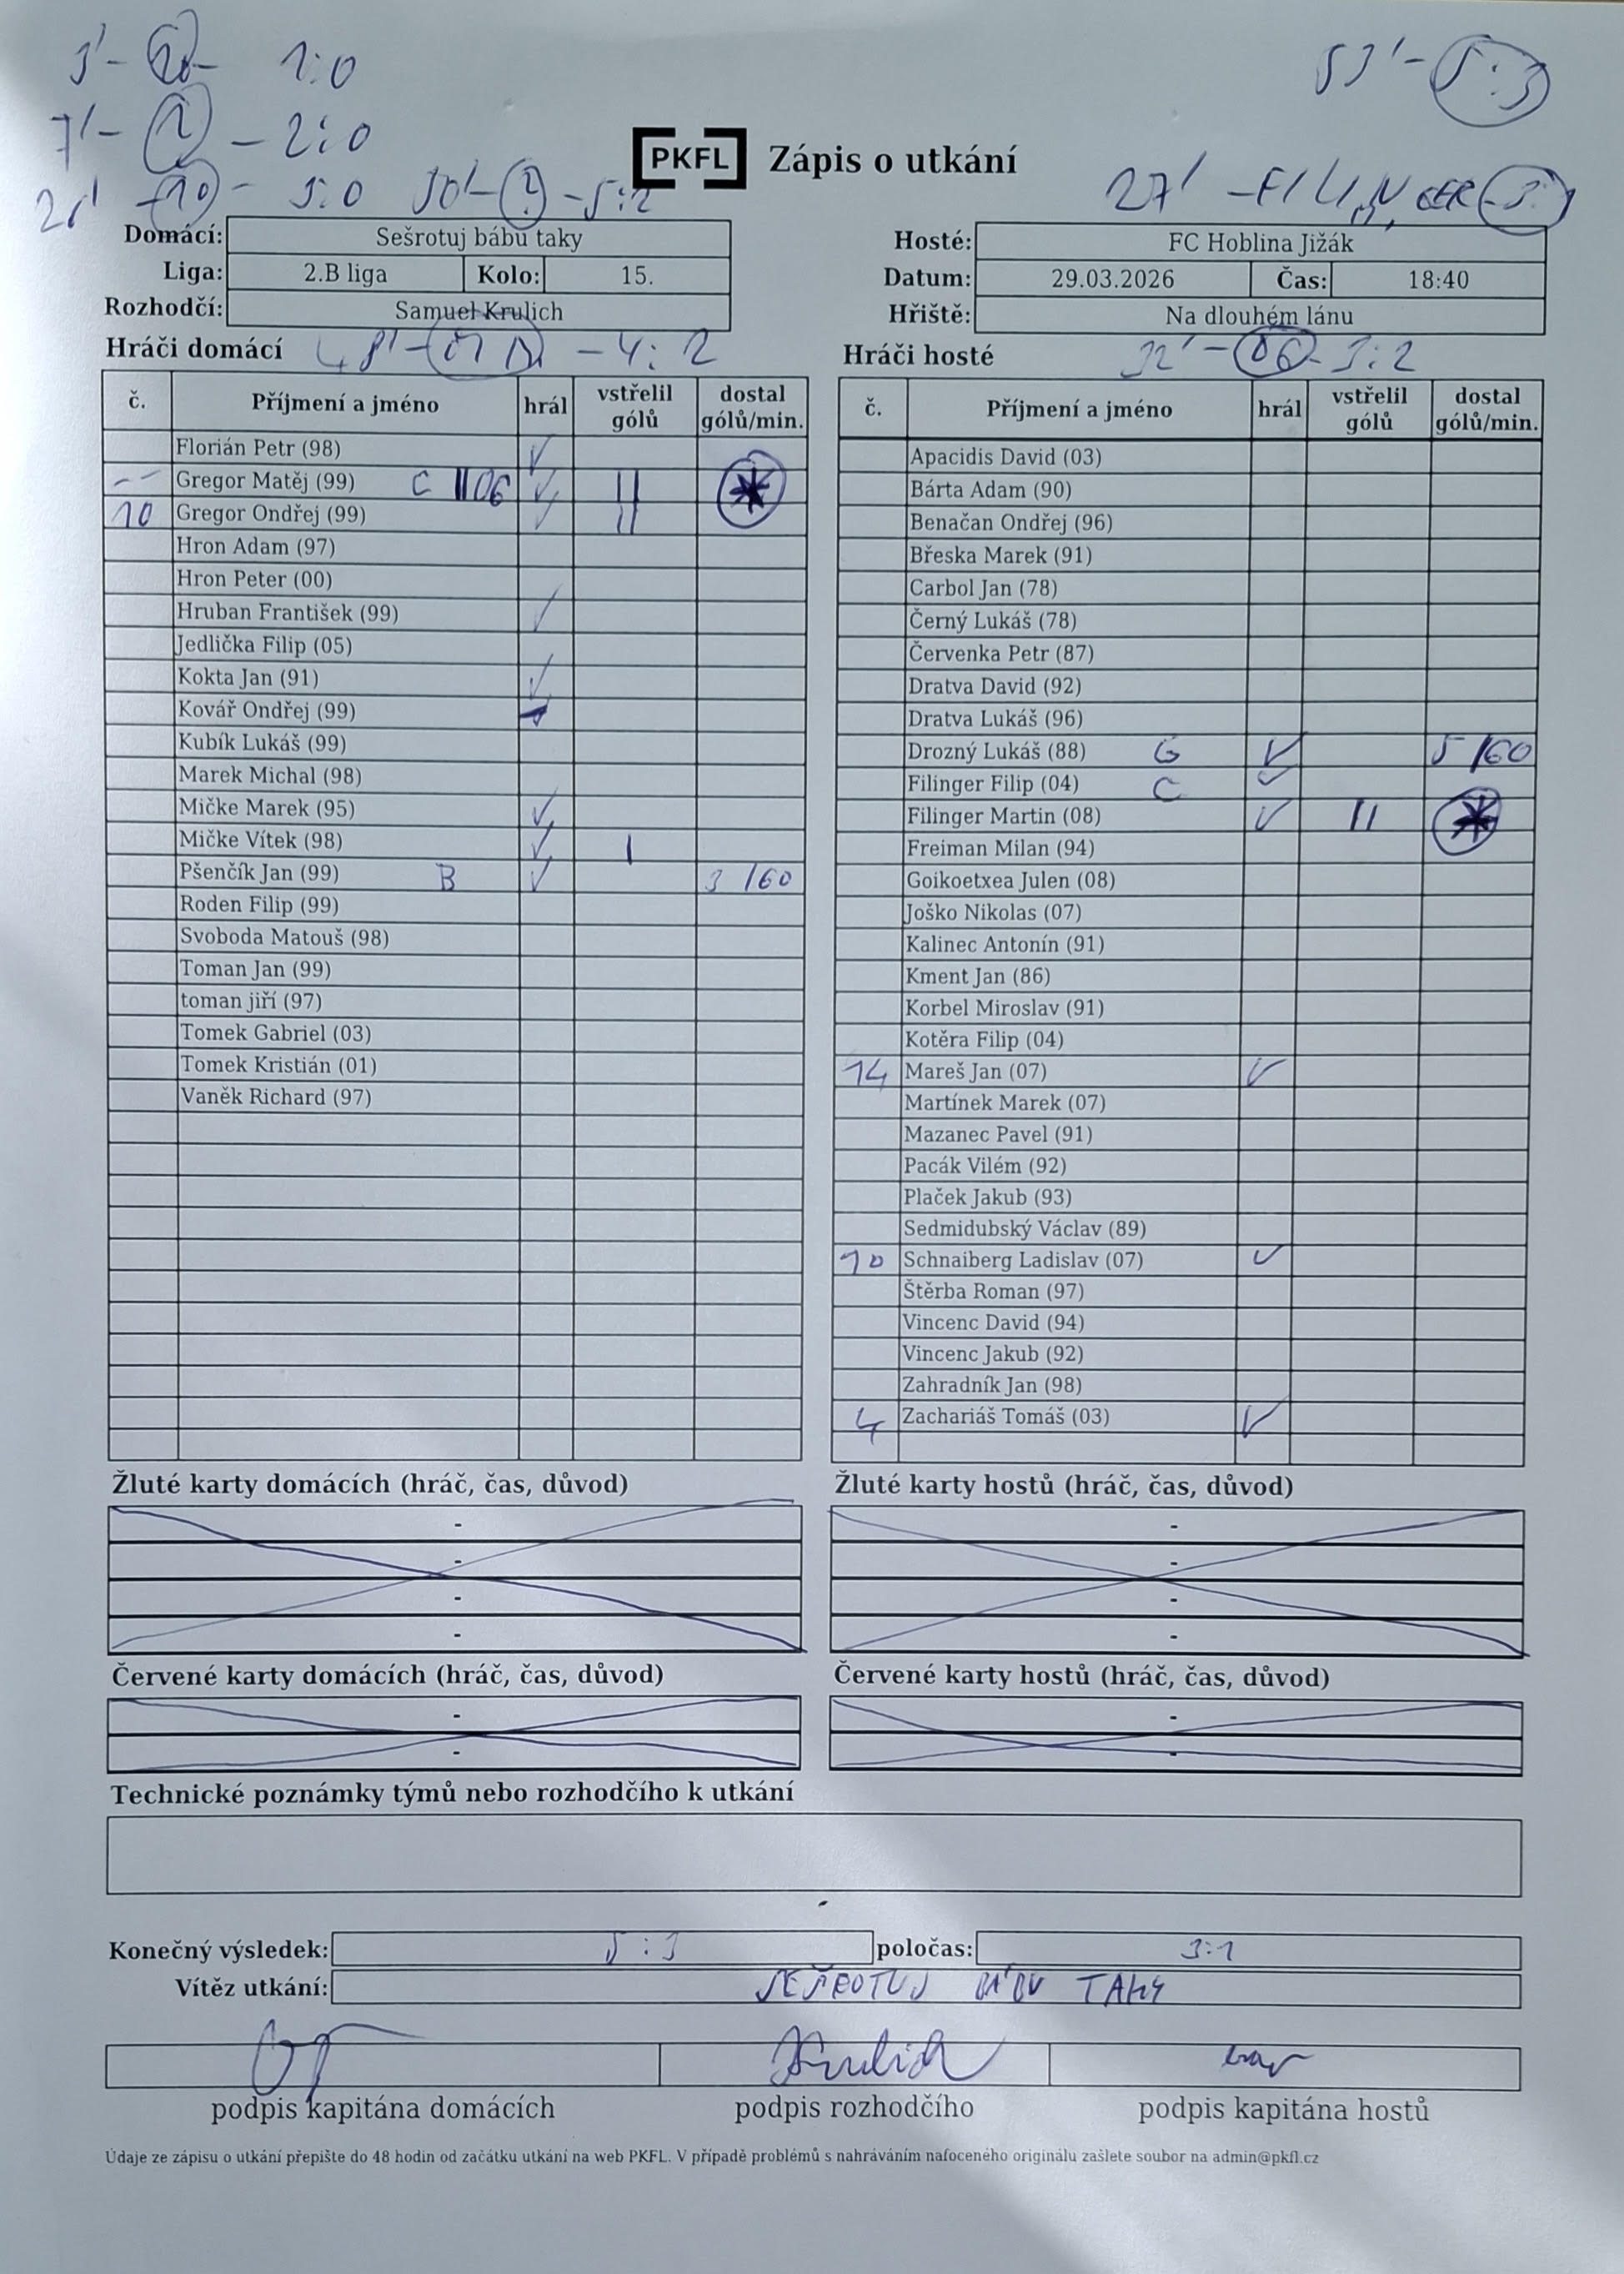 3' - 1:0
53' - 5:3
7' - 2:0
PKFL Zápis o utkání
10 - 3:0 30' - 5:2
27' - FILINGER
Domácí: Sešrotuj bábu taky
Hosté: FC Hoblina Jižák
Liga: 2.B liga Kolo: 15.
Datum: 29.03.2026 Čas: 18:40
Rozhodčí: Samuel Krulich
Hřiště: Na dlouhém lánu
Hráči domácí 48' - 4:2
Hráči hosté 32' - 06 - 3:2
č. Příjmení a jméno hrál vstřelil gólů dostal gólů/min.
Florián Petr (98) ✓
-- Gregor Matěj (99) C ✓ ||
10 Gregor Ondřej (99) ✓ ||
Hron Adam (97)
Hron Peter (00)
Hruban František (99) ✓
Jedlička Filip (05)
Kokta Jan (91) ✓
Kovář Ondřej (99)
Kubík Lukáš (99)
Marek Michal (98)
Mičke Marek (95) ✓
Mičke Vítek (98) ✓ |
Pšenčík Jan (99) B ✓ 3 /60
Roden Filip (99)
Svoboda Matouš (98)
Toman Jan (99)
toman jiří (97)
Tomek Gabriel (03)
Tomek Kristián (01)
Vaněk Richard (97)
č. Příjmení a jméno hrál vstřelil gólů dostal gólů/min.
Apacidis David (03)
Bárta Adam (90)
Benačan Ondřej (96)
Břeska Marek (91)
Carbol Jan (78)
Černý Lukáš (78)
Červenka Petr (87)
Dratva David (92)
Dratva Lukáš (96)
Drozný Lukáš (88) G ✓ 5 /60
Filinger Filip (04) C ✓
Filinger Martin (08) ✓ ||
Freiman Milan (94)
Goikoetxea Julen (08)
Joško Nikolas (07)
Kalinec Antonín (91)
Kment Jan (86)
Korbel Miroslav (91)
Kotěra Filip (04)
14 Mareš Jan (07) ✓
Martínek Marek (07)
Mazanec Pavel (91)
Pacák Vilém (92)
Plaček Jakub (93)
Sedmidubský Václav (89)
10 Schnaiberg Ladislav (07) ✓
Štěrba Roman (97)
Vincenc David (94)
Vincenc Jakub (92)
Zahradník Jan (98)
4 Zachariáš Tomáš (03) ✓
Žluté karty domácích (hráč, čas, důvod)
-
-
-
-
Žluté karty hostů (hráč, čas, důvod)
-
-
-
-
Červené karty domácích (hráč, čas, důvod)
-
-
Červené karty hostů (hráč, čas, důvod)
-
-
Technické poznámky týmů nebo rozhodčího k utkání
Konečný výsledek: 5 : 3 poločas: 3:1
Vítěz utkání: SEŠROTUJ BÁBU TAKY
Krulich
podpis kapitána domácích podpis rozhodčího podpis kapitána hostů
Údaje ze zápisu o utkání přepište do 48 hodin od začátku utkání na web PKFL. V případě problémů s nahráváním nafoceného originálu zašlete soubor na admin@pkfl.cz